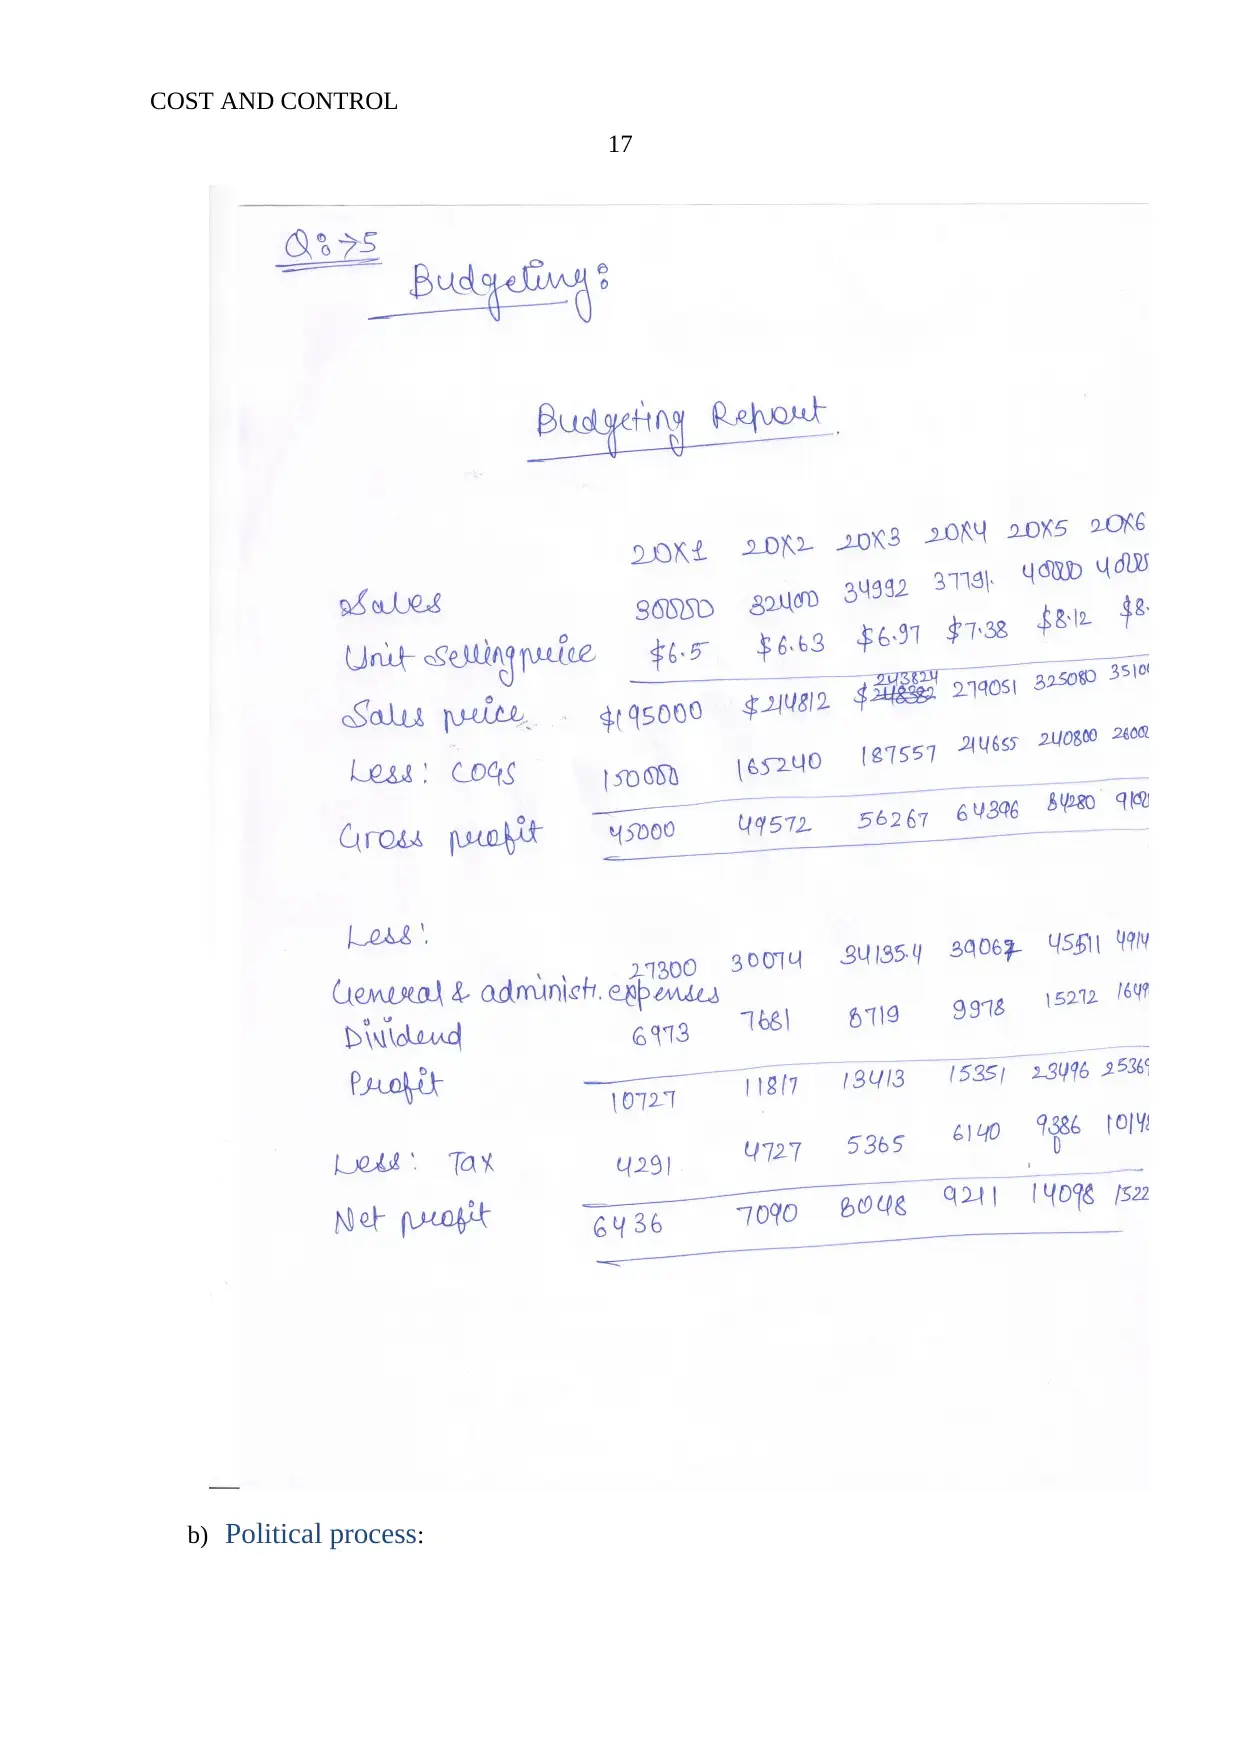 COST AND CONTROL
17
Q:→5
Budgeting:
Budgeting Report.
20X1 20X2 20X3 20X4 20X5 20X6
Sales 30000 32400 34992 37791. 40000 40000
Unit Selling price $6.5 $6.63 $6.97 $7.38 $8.12 $8.
Sales price $195000 $214812 $243824 279051 325080 3510
Less: COGS 150000 165240 187557 214655 240800 2600
Gross profit 45000 49572 56267 64396 84280 910
Less:
General & administr. expenses 27300 30074 34135.4 39067 45511 4914
Dividend 6973 7681 8719 9978 15272 1649
Profit 10727 11817 13413 15351 23496 2536
Less: Tax 4291 4727 5365 6140 9386 1014
Net profit 6436 7090 8048 9211 14098 1522
b) Political process: